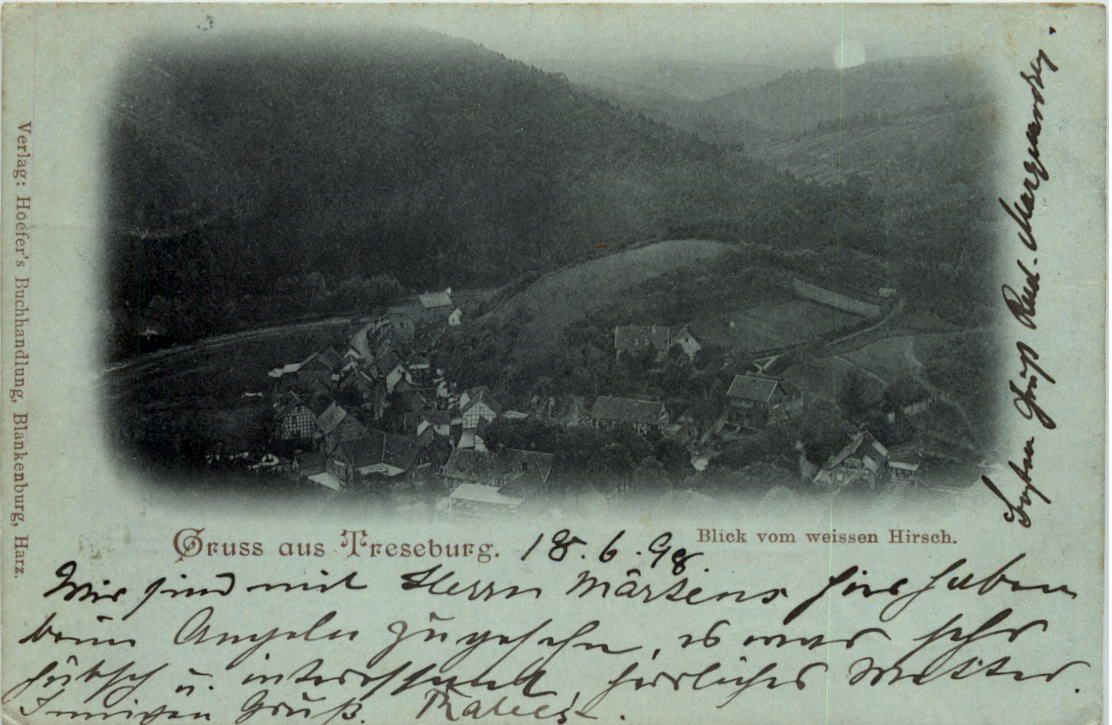 Verlag: Hoefer's Buchhandlung, Blankenburg, Harz.
Gruss aus Treseburg.
Blick vom weissen Hirsch.
18. 6. 98.
Wir sind mit Herrn Märtens hier haben
beim Angeln zugesehen, es war sehr
hübsch u. interessant, herrliches Wetter.
Innigen Gruß.
Gruß Rud. Marquardt.